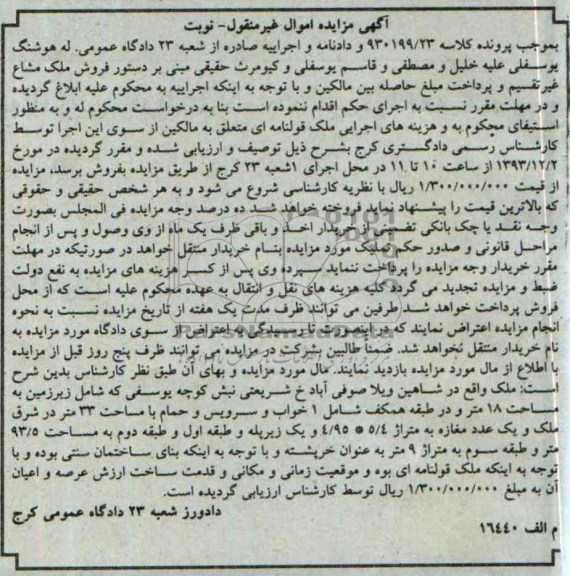 آگهی مزایده اموال غیرمنقول- نوبت
بموجب پرونده کلاسه ۹۳۰۱۹۹/۲۳ و دادنامه و اجراییه صادره از شعبه ۲۳ دادگاه عمومی. له هوشنگ
یوسفلی علیه خلیل و مصطفی و قاسم یوسفلی و کیومرث حقیقی مبنی بر دستور فروش ملک مشاع
غیرتقسیم و پرداخت مبلغ حاصله بین مالکین و با توجه به اینکه اجراییه به محکوم علیه ابلاغ گردیده
و در مهلت مقرر نسبت به اجرای حکم اقدام ننموده است بنا به درخواست محکوم له و به منظور
استیفای محکوم به و هزینه های اجرایی ملک قولنامه ای متعلق به مالکین از سوی این اجرا توسط
کارشناس رسمی دادگستری کرج بشرح ذیل توصیف و ارزیابی شده و مقرر گردیده در مورخ
۱۳۹۳/۱۲/۲ از ساعت ۱۰ تا ۱۱ در محل اجرای ۱شعبه ۲۳ کرج از طریق مزایده بفروش برسد، مزایده
از قیمت ۱/۳۰۰/۰۰۰/۰۰۰ ریال با نظریه کارشناسی شروع می شود و به هر شخص حقیقی و حقوقی
که بالاترین قیمت را پیشنهاد نماید فروخته خواهد شد ده درصد وجه مزایده فی المجلس بصورت
وجه نقد یا چک بانکی تضمینی از خریدار اخذ و باقی ظرف یک ماه از وی وصول و پس از انجام
مراحل قانونی و صدور حکم تملیک مورد مزایده بنام خریدار منتقل خواهد در صورتیکه در مهلت
مقرر خریدار وجه مزایده را پرداخت ننماید سپرده وی پس از کسر هزینه های مزایده به نفع دولت
ضبط و مزایده تجدید می گردد کلیه هزینه های نقل و انتقال به عهده محکوم علیه است که از محل
فروش پرداخت خواهد شد طرفین می توانند ظرف مدت یک هفته از تاریخ مزایده نسبت به نحوه
انجام مزایده اعتراض نمایند که در اینصورت تا رسیدگی به اعتراض از سوی دادگاه مورد مزایده به
نام خریدار منتقل نخواهد شد. ضمنا طالبین بشرکت در مزایده می توانند ظرف پنج روز قبل از مزایده
با اطلاع از مال مورد مزایده بازدید نمایند. مال مورد مزایده و بهای آن طبق نظر کارشناس بدین شرح
است: ملک واقع در شاهین ویلا صوفی آباد خ شریعتی نبش کوچه یوسفی که شامل زیرزمین به
مساحت ۱۸ متر و در طبقه همکف شامل ۱ خواب و سرویس و حمام با مساحت ۳۳ متر در شرق
ملک و یک عدد مغازه به متراژ ۵/۴ * ۴/۹۵ و یک زیرپله و طبقه اول و طبقه دوم به مساحت ۹۳/۵
متر و طبقه سوم به متراژ ۹ متر به عنوان خرپشته و با توجه به اینکه بنای ساختمان سنتی بوده و با
توجه به اینکه ملک قولنامه ای بوه و موقعیت زمانی و مکانی و قدمت ساخت ارزش عرصه و اعیان
آن به مبلغ ۱/۳۰۰/۰۰۰/۰۰۰ ریال توسط کارشناس ارزیابی گردیده است.
دادورز شعبه ۲۳ دادگاه عمومی کرج
م الف ۱۶۴۴۰